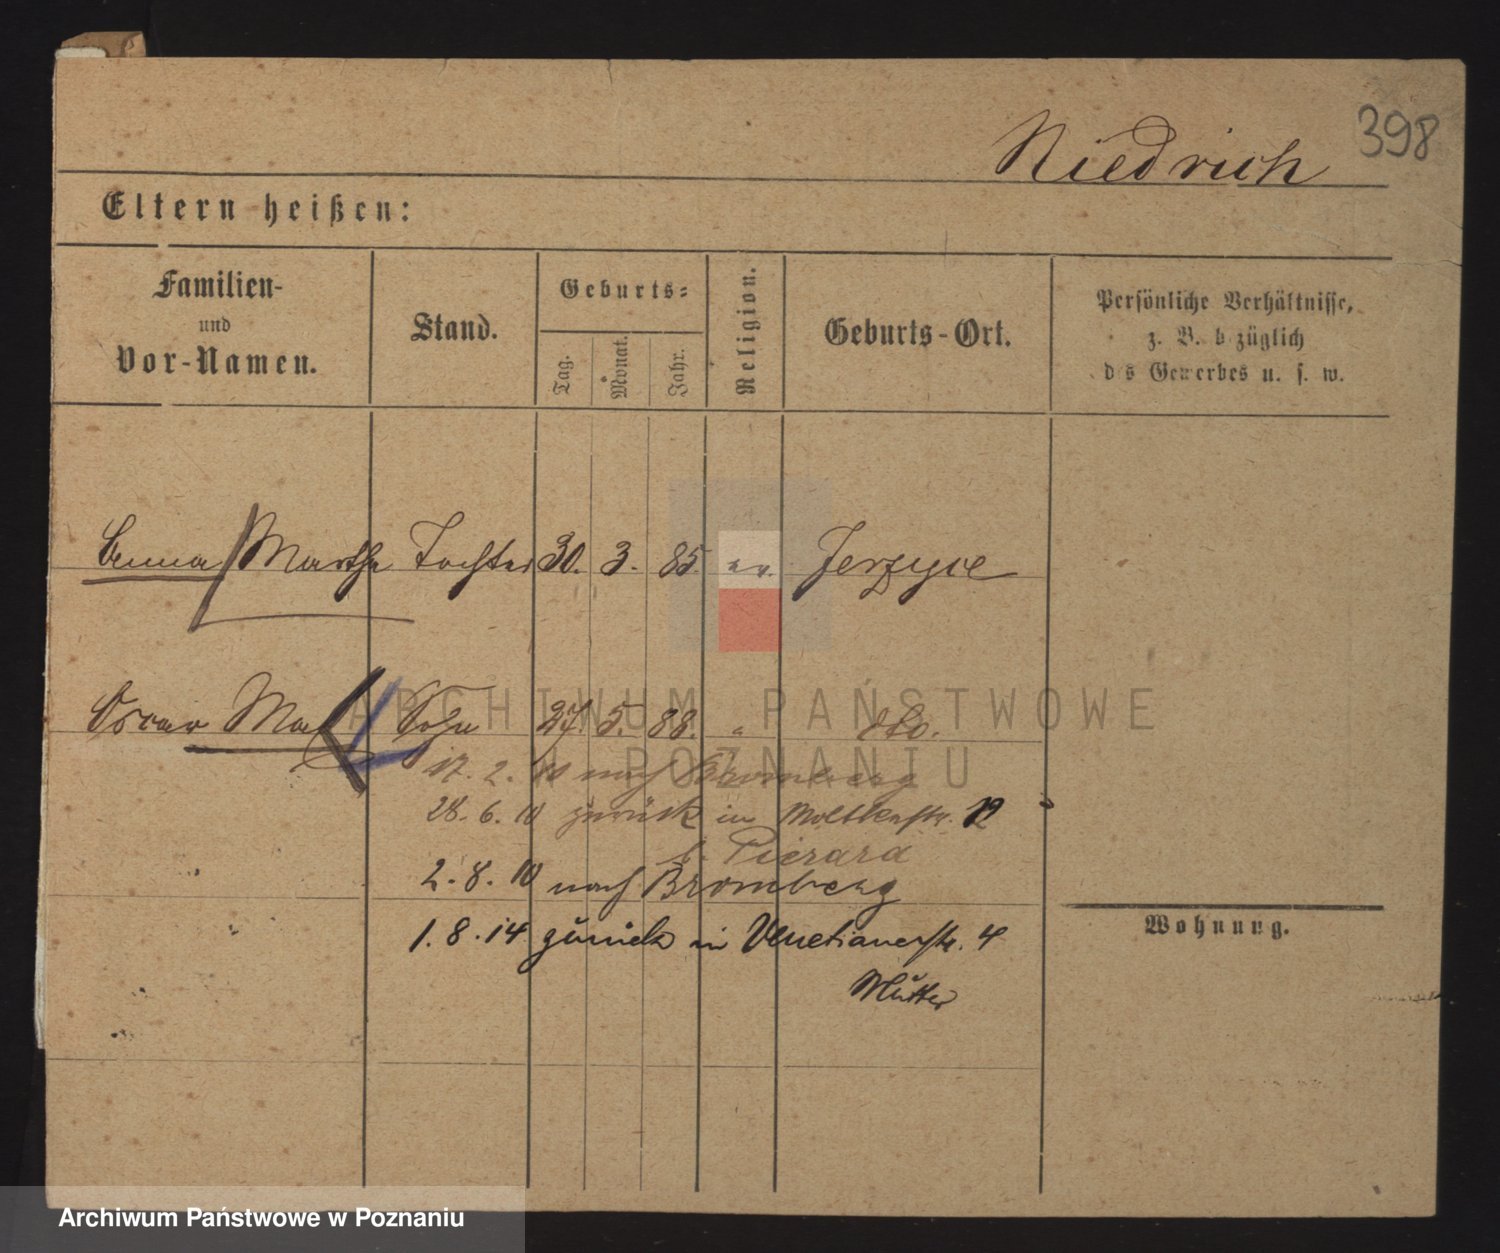 398
Niedrich
Eltern heißen:
Familien-
und
Vor-Namen.
Stand.
Geburts-
Tag.
Monat.
Jahr.
Religion.
Geburts-Ort.
Persönliche Verhältnisse,
z. B. b züglich
d s Gewerbes u. s. w.
Anna Martha Tochter 30. 3. 85. ev. Jerzyce
Oscar Max Sohn 27. 5. 88. " dto.
17. 2. 10 nach Bromberg
28. 6. 10 zurück in Moltkestr. 12
b. Pierard
2. 8. 10 nach Bromberg
1. 8. 14 zurück in Venetianerstr. 4
Mutter
Wohnung.
ARCHIWUM PAŃSTWOWE
W POZNANIU
Archiwum Państwowe w Poznaniu